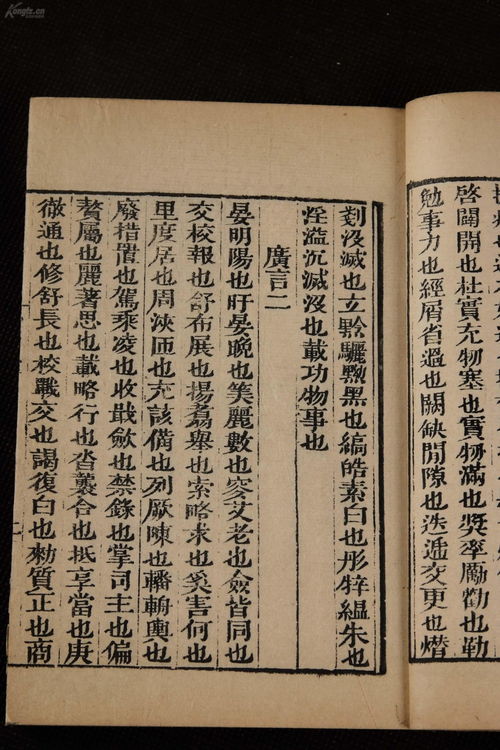 啓闢開也杜實充物塞也實物滿也獎率厲勸也勒
勉事力也經屑省過也闕缺閒隙也迭遞交更也熸
剗沒滅也玄黔驪黝黑也縞皓素白也彤牸縕朱也
淫溢沉滅沒也載功物事也
廣言二
晏明陽也旰晏晚也筭麗數也叜艾老也僉皆同也
交校報也舒布展也揚翥舉也索略求也奚害何也
里度居也周浹匝也充該備也列厥陳也轓輈輿也
廢措置也駕乘凌也收戢斂也禁錄也掌司主也偏
贅屬也麗著思也載略行也沓襲合也抵享當也庚
徹通也修舒長也校戰交也謁復白也勑質正也商
Kongfz.cn